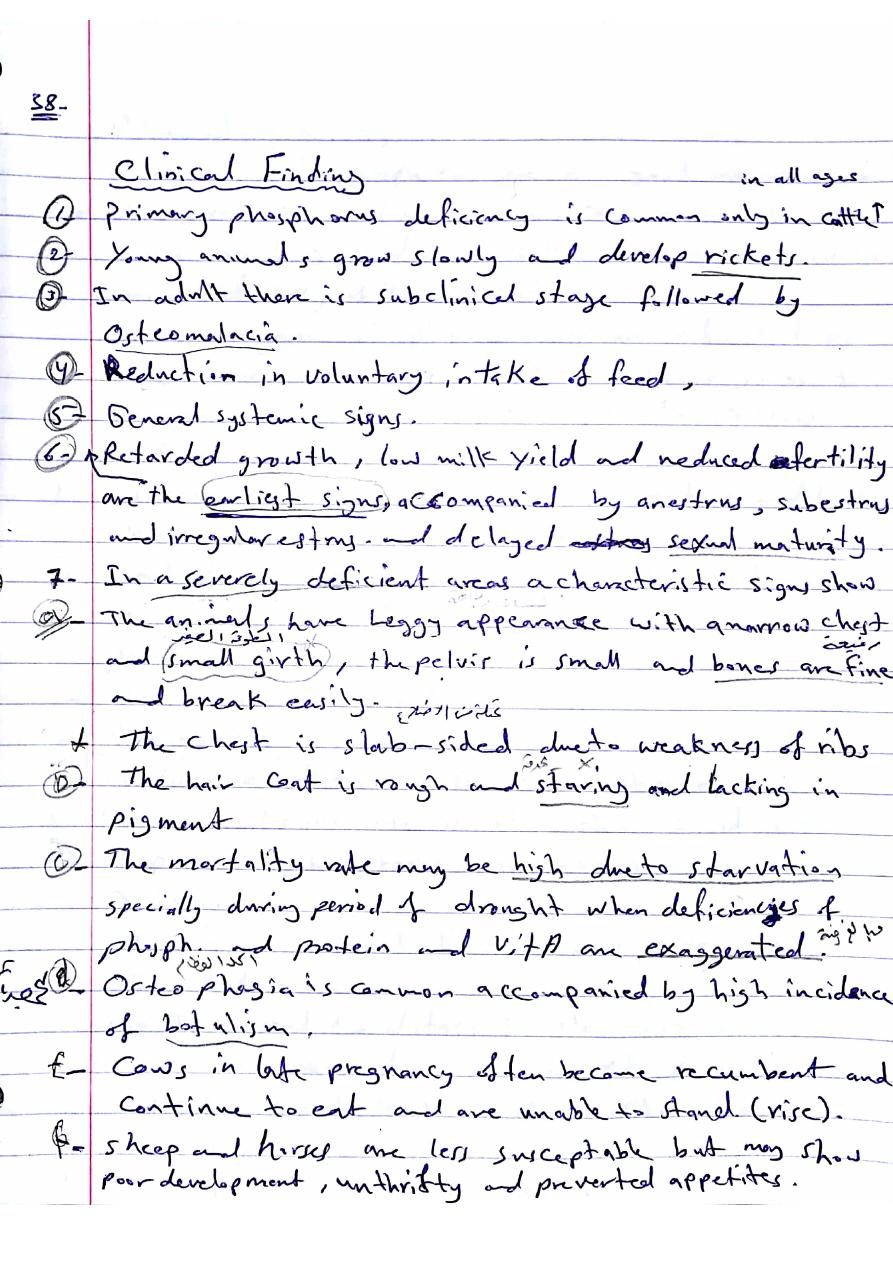 38-
Clinical Finding
in all ages
1- Primary phosphorus deficiency is common only in cattle↑
2- Young animals grow slowly and develop rickets.
3- In adult there is subclinical stage followed by
Osteomalacia.
4- Reduction in voluntary intake of feed,
5- General systemic signs.
6- Retarded growth, low milk yield and reduced fertility
are the earliest signs, accompanied by anestrus, subestrus
and irregular estrus. and delayed sexual maturity.
7- In a severely deficient areas a characteristic signs show
a- The animals have leggy appearance with a narrow chest
and small girth, the pelvis is small and bones are fine
and break easily.
* The chest is slab-sided due to weakness of ribs
b- The hair coat is rough and staring and lacking in
pigment
c- The mortality rate may be high due to starvation
specially during period of drought when deficiencies of
phosph. and protein and Vit A are exaggerated.
أكل العظام
d- Osteophagia is common accompanied by high incidence
of botulism.
E- Cows in late pregnancy often become recumbent and
continue to eat and are unable to stand (rise).
f- sheep and horses are less susceptable but may show
poor development, unthrifty and preverted appetites.